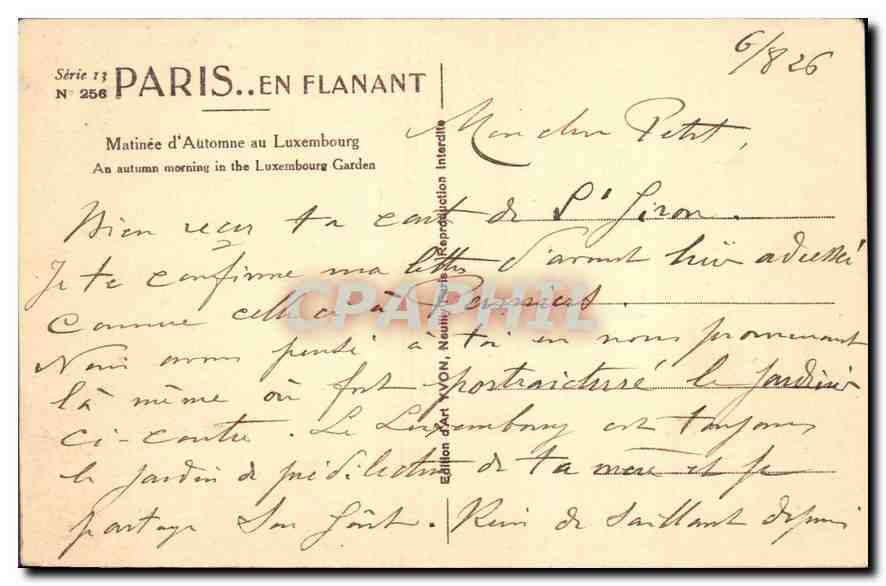 6/8 26
Série 13
N° 256
PARIS..EN FLANANT
Matinée d'Automne au Luxembourg
An autumn morning in the Luxembourg Garden
Edition d'Art YVON, Neuilly Paris. Reproduction Interdite
CPAPHIL
Mon cher Petit,
Bien reçu ta carte de St Giron.
Je te confirme ma lettre d'avant hier adressé
comme celle ci à Pamiers.
Nous avons pensé à toi en nous promenant
là même où fut portraicturé le jardinier
ci-contre. Le Luxembourg est toujours
le jardin de prédilection de ta mère et je
partage son goût. Rien de saillant depuis